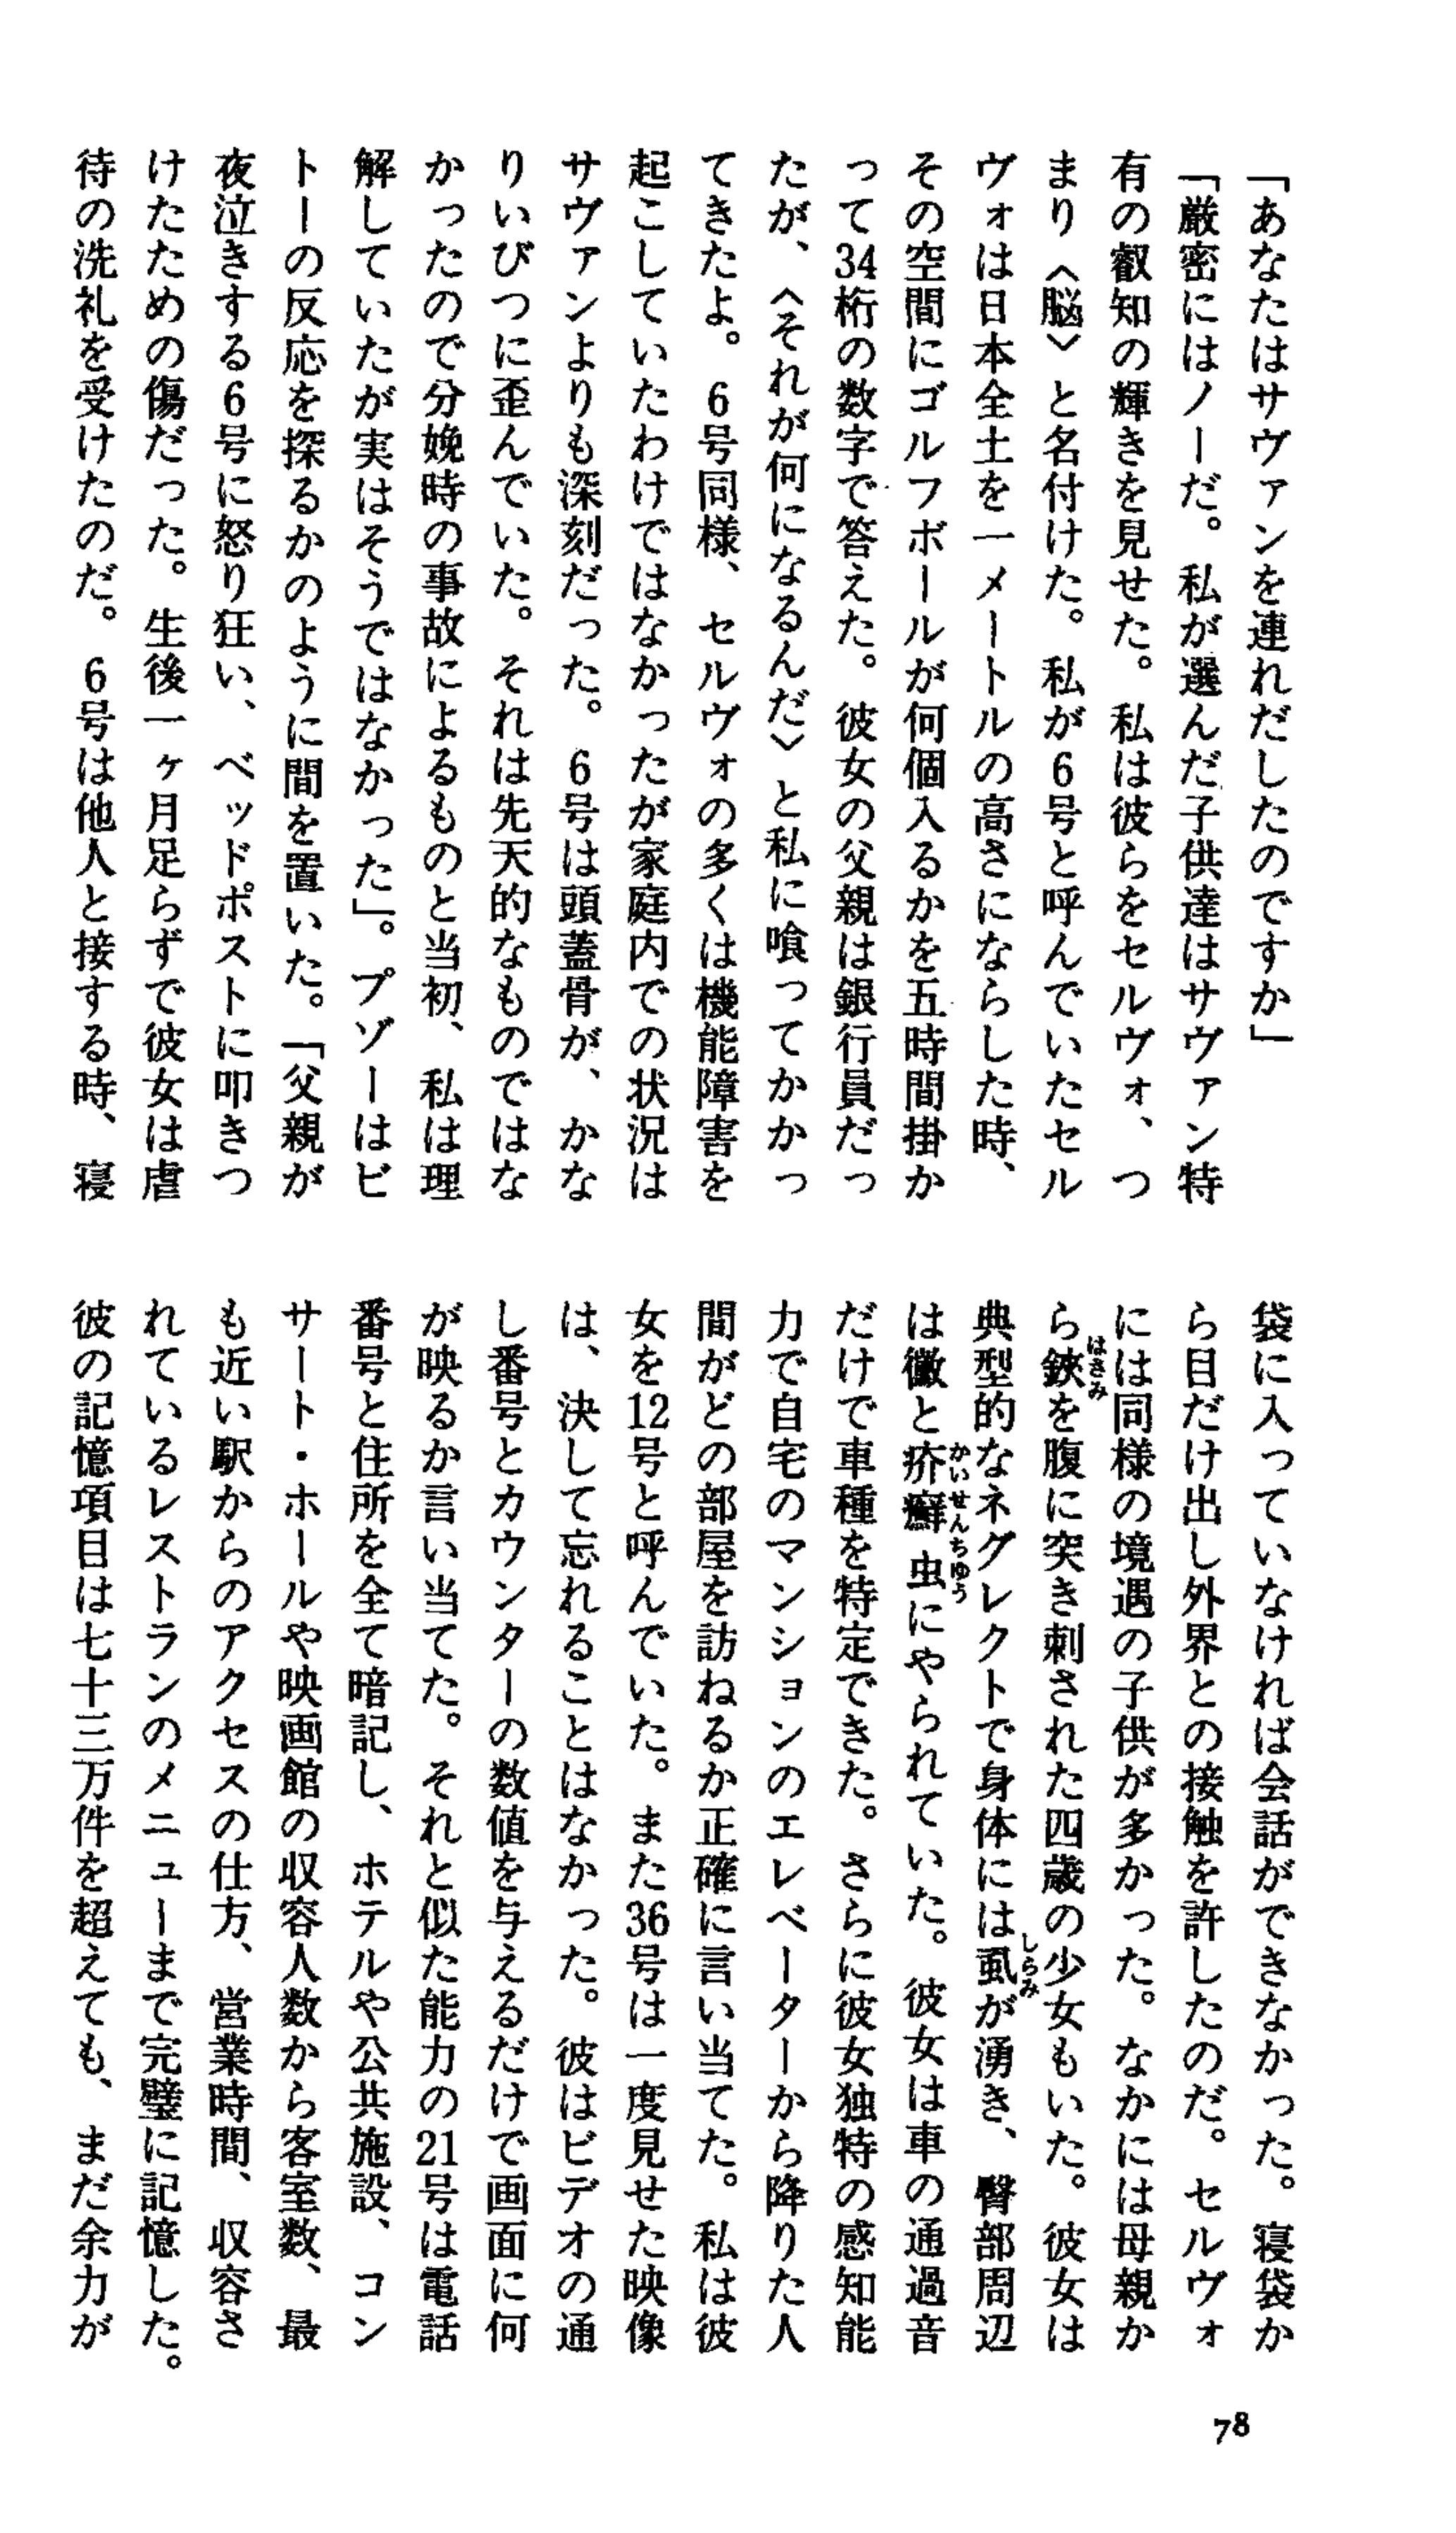 「あなたはサヴァンを連れだしたのですか」
「厳密にはノーだ。私が選んだ子供達はサヴァン特
有の叡知の輝きを見せた。私は彼らをセルヴォ、つ
まり〈脳〉と名付けた。私が6号と呼んでいたセル
ヴォは日本全土を一メートルの高さにならした時、
その空間にゴルフボールが何個入るかを五時間掛か
って34桁の数字で答えた。彼女の父親は銀行員だっ
たが、〈それが何になるんだ〉と私に喰ってかかっ
てきたよ。6号同様、セルヴォの多くは機能障害を
起こしていたわけではなかったが家庭内での状況は
サヴァンよりも深刻だった。6号は頭蓋骨が、かな
りいびつに歪んでいた。それは先天的なものではな
かったので分娩時の事故によるものと当初、私は理
解していたが実はそうではなかった」。プゾーはビ
トーの反応を探るかのように間を置いた。「父親が
夜泣きする6号に怒り狂い、ベッドポストに叩きつ
けたための傷だった。生後一ヶ月足らずで彼女は虐
待の洗礼を受けたのだ。6号は他人と接する時、寝
袋に入っていなければ会話ができなかった。寝袋か
ら目だけ出し外界との接触を許したのだ。セルヴォ
には同様の境遇の子供が多かった。なかには母親か
ら鋏を腹に突き刺された四歳の少女もいた。彼女は
典型的なネグレクトで身体には虱が湧き、臀部周辺
は黴と疥癬虫にやられていた。彼女は車の通過音
だけで車種を特定できた。さらに彼女独特の感知能
力で自宅のマンションのエレベーターから降りた人
間がどの部屋を訪ねるか正確に言い当てた。私は彼
女を12号と呼んでいた。また36号は一度見せた映像
は、決して忘れることはなかった。彼はビデオの通
し番号とカウンターの数値を与えるだけで画面に何
が映るか言い当てた。それと似た能力の21号は電話
番号と住所を全て暗記し、ホテルや公共施設、コン
サート・ホールや映画館の収容人数から客室数、最
も近い駅からのアクセスの仕方、営業時間、収容さ
れているレストランのメニューまで完璧に記憶した。
彼の記憶項目は七十三万件を超えても、まだ余力が
78